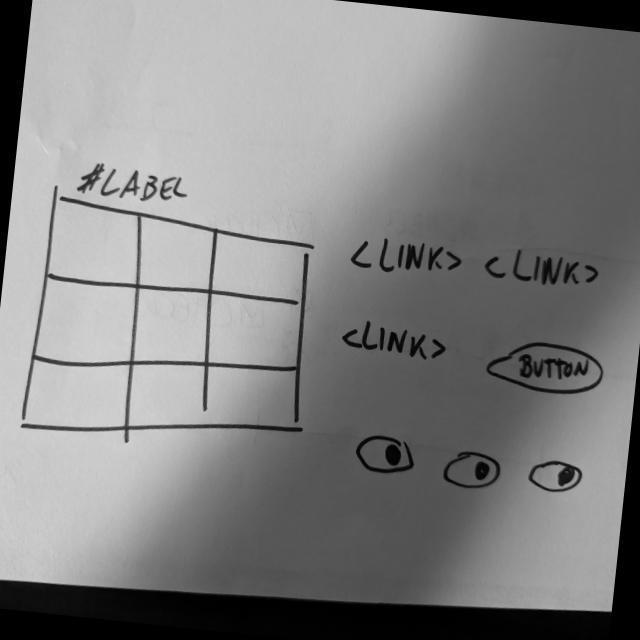 #LABEL
<LINK> <LINK>
<LINK> BUTTON